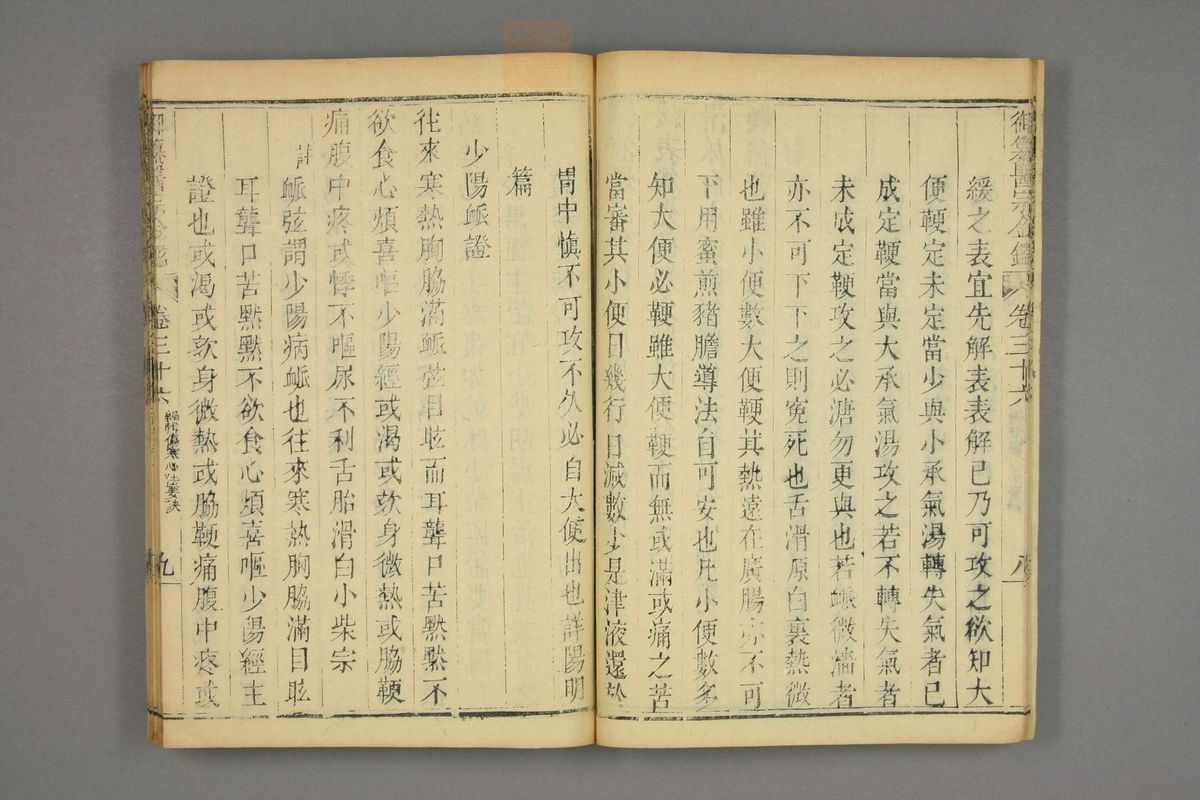 御纂醫宗金鑑 卷三十六 八
緩之表宜先解表表解已乃可攻之欲知大
便鞕定未定當少與小承氣湯轉失氣者已
成定鞕當與大承氣湯攻之若不轉失氣者
未成定鞕攻之必溏勿更與也若脈微濇者
亦不可下下之則冤死也舌滑原白裏熱微
也雖小便數大便鞕其熱遠在廣腸亦不可
下用蜜煎豬膽導法自可安也凡小便數多
知大便必鞕雖大便鞕而無或滿或痛之苦
當審其小便日幾行日減數少是津液還於
胃中慎不可攻不久必自大便出也詳陽明
篇
少陽脈證
往來寒熱胸脇滿脈弦目眩而耳聾口苦默默不
欲食心煩喜嘔少陽經或渴或欬身微熱或脇鞕
痛腹中疼或悸不嘔尿不利舌胎滑白小柴宗
註脈弦謂少陽病脈也往來寒熱胸脇滿目眩
耳聾口苦默默不欲食心煩喜嘔少陽經主
證也或渴或欬身微熱或脇鞕痛腹中疼或
御纂醫宗金鑑 卷三十六 編輯傷寒心法要訣 九